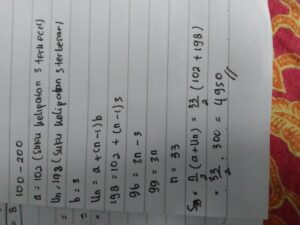 100 - 200
a = 102 (suku kelipatan 3 terkecil)
Un = 198 (suku kelipatan 3 terbesar)
b = 3
Un = a + (n-1) b
198 = 102 + (n-1) 3
96 = 3n - 3
99 = 3n
n = 33
S₃₃ = n/2 (a + Un) = 33/2 (102 + 198)
= 33/2 . 300 = 4950 //